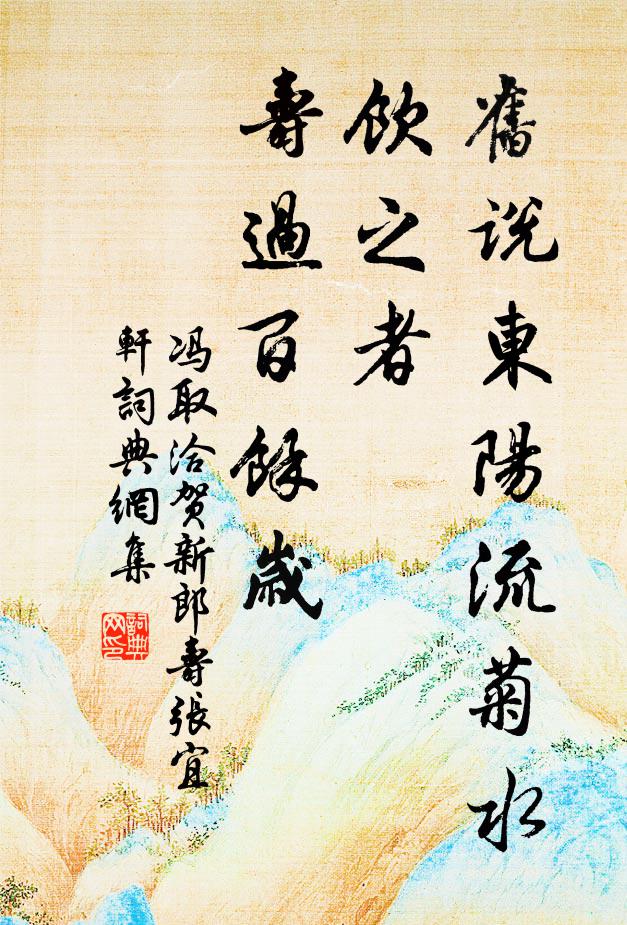 舊説東陽流菊水
飲之者
壽過百餘歲
冯取洽贺新郎壽張宜
軒詞典網集
詞典
网印